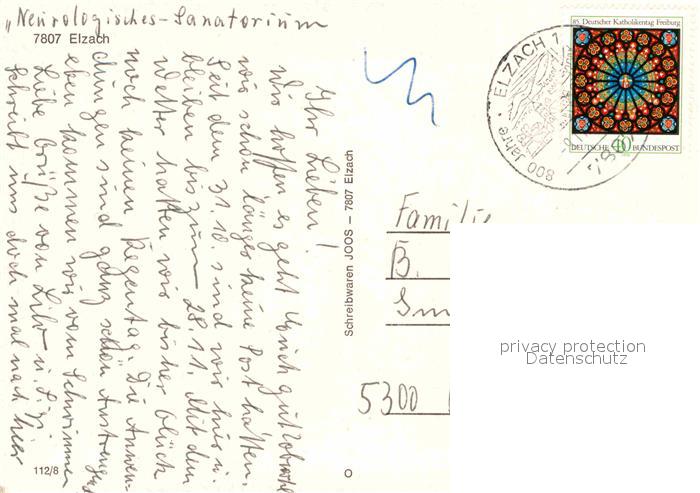 "Neurologisches-Sanatorium
7807 Elzach
Ihr Lieben!
Wir hoffen, es geht Euch gut, obwohl
wir schon länger keine Post hatten.
Seit dem 31.10. sind wir hier u.
bleiben bis zum 28.11. Mit dem
Wetter hatten wir bisher Glück
noch keinen Regentag. Die Anwen-
dungen sind ganz schön anstrengend
eben kommen wir vom Schwimmen
Liebe Grüße von Lilo u.
Schreibt uns doch mal nach hier
112/8
Schreibwaren JOOS – 7807 Elzach
85. Deutscher Katholikentag Freiburg
DEUTSCHE 40 BUNDESPOST
ELZACH 1
800 Jahre
Familie
B.
5300
privacy protection
Datenschutz